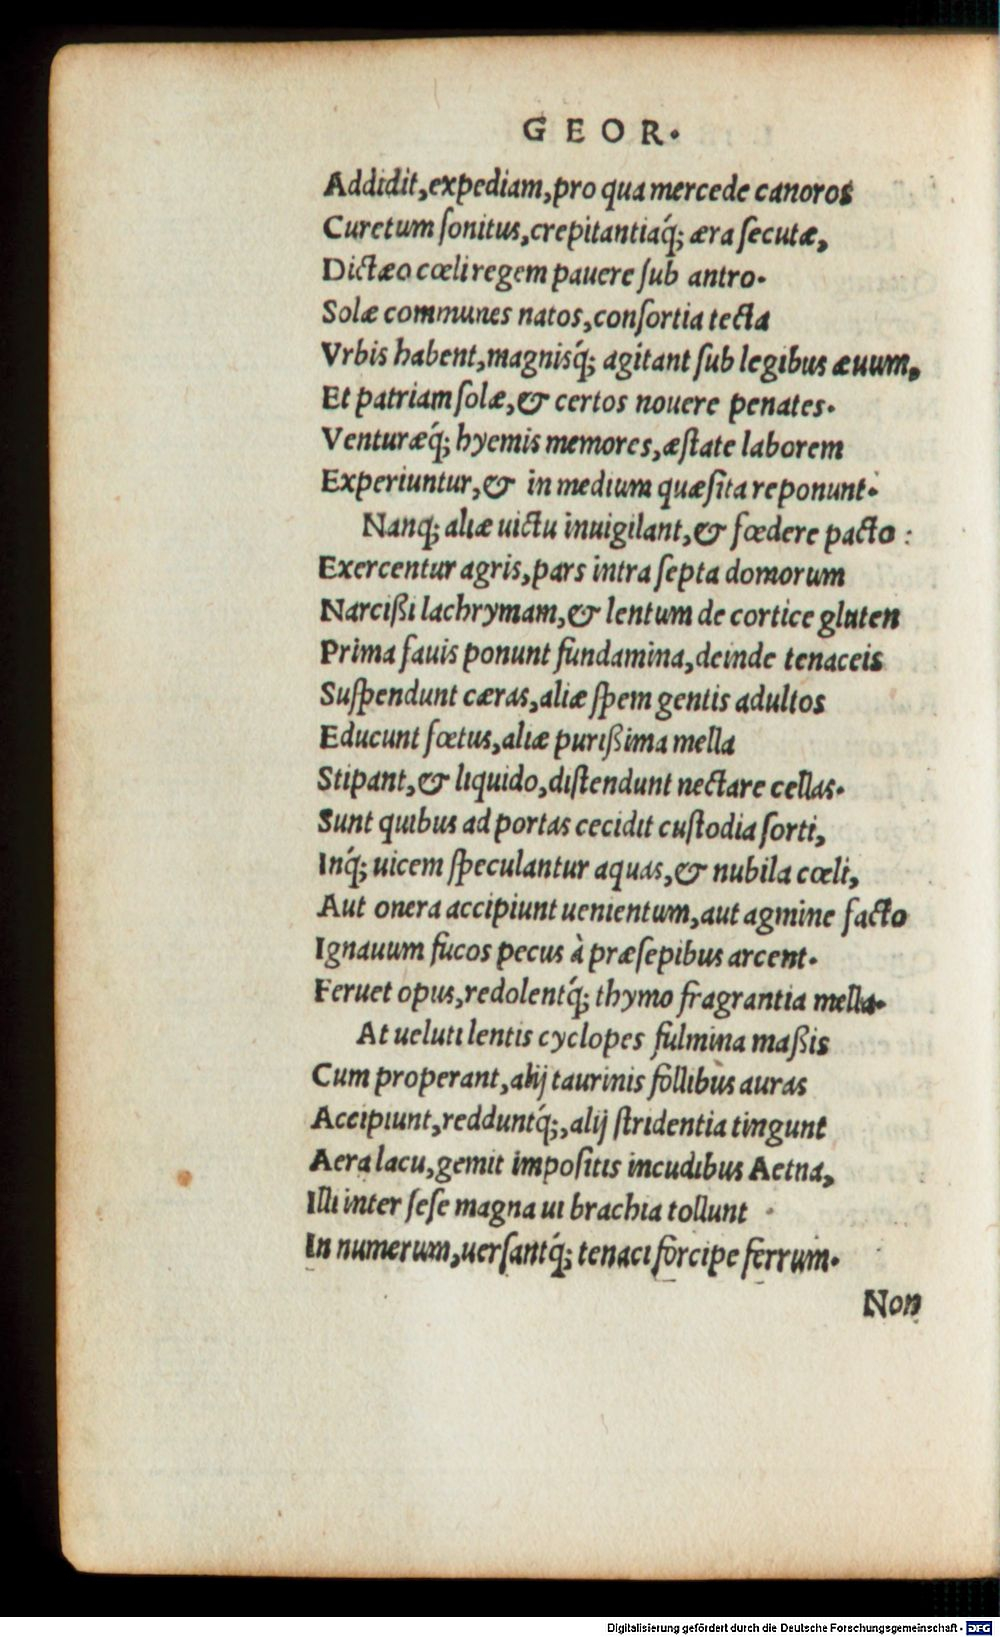 GEOR.
Addidit,expediam,pro qua mercede canoros
Curetum ſonitus,crepitantiaq́; æra ſecutæ,
Dictæo cœli regem pauere ſub antro.
Solæ communes natos,conſortia tecta
Vrbis habent,magnisq́; agitant ſub legibus æuum,
Et patriam ſolæ,& certos nouere penates.
Venturæq́; hyemis memores,æſtate laborem
Experiuntur,& in medium quæſita reponunt.
Nanq; aliæ uictu inuigilant,& fœdere pacto :
Exercentur agris,pars intra ſepta domorum
Narcißi lachrymam,& lentum de cortice gluten
Prima fauis ponunt fundamina,deinde tenaceis
Suſpendunt cæras,aliæ ſpem gentis adultos
Educunt fœtus,aliæ purißima mella
Stipant,& liquido,diſtendunt nectare cellas.
Sunt quibus ad portas cecidit cuſtodia ſorti,
Inq́; uicem ſpeculantur aquas,& nubila cœli,
Aut onera accipiunt uenientum,aut agmine facto
Ignauum fucos pecus à præſepibus arcent.
Feruet opus,redolentq́; thymo fragrantia mella.
At ueluti lentis cyclopes fulmina maßis
Cum properant,alij taurinis follibus auras
Accipiunt,redduntq́;,alij ſtridentia tingunt
Aera lacu,gemit impoſitis incudibus Aetna,
Illi inter ſeſe magna ui brachia tollunt
In numerum,uerſantq́; tenaci forcipe ferrum.
Non
Digitalisierung gefördert durch die Deutsche Forschungsgemeinschaft - DFG